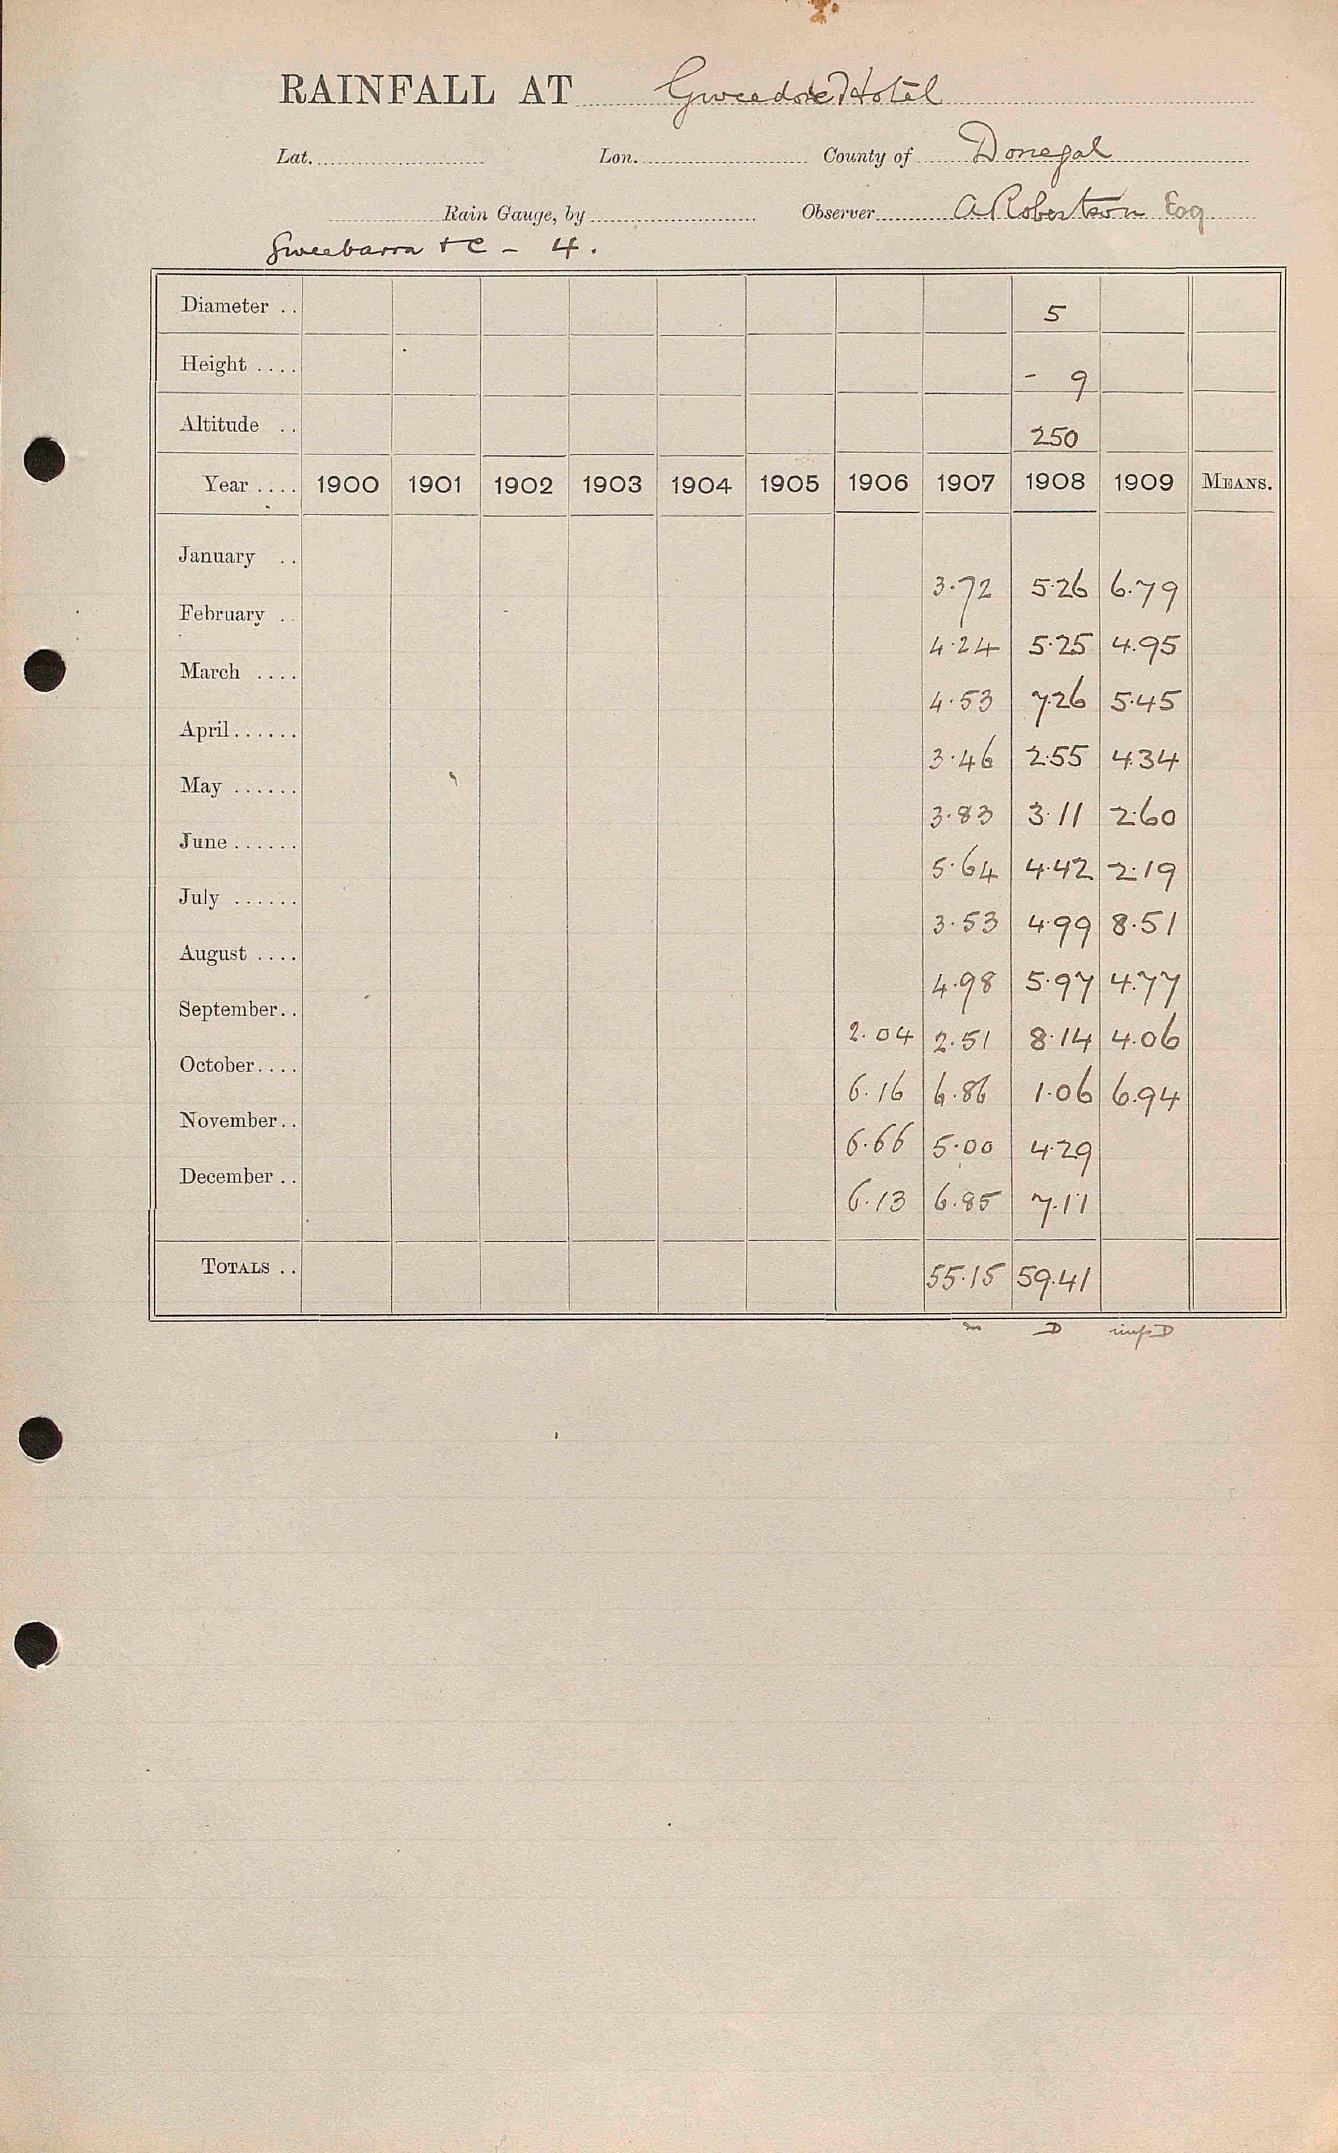 RAINFALL AT Gweedore Hotel
Lat. Lon. County of Donegal
Rain Gauge, by Observer A Robertson Esq
Gweebarra &c - 4.
Diameter .. 5
Height .... - 9
Altitude .. 250
Year .... 1900 1901 1902 1903 1904 1905 1906 1907 1908 1909 MEANS.
January .. 3.72 5.26 6.79
February .. 4.24 5.25 4.95
March .... 4.53 7.26 5.45
April...... 3.46 2.55 4.34
May ...... 3.83 3.11 2.60
June ...... 5.64 4.42 2.19
July ...... 3.53 4.99 8.51
August .... 4.98 5.97 4.77
September.. 2.04 2.51 8.14 4.06
October.... 6.16 6.86 1.06 6.94
November.. 6.66 5.00 4.29
December .. 6.13 6.85 7.11
TOTALS .. 55.15 59.41
m D imp D